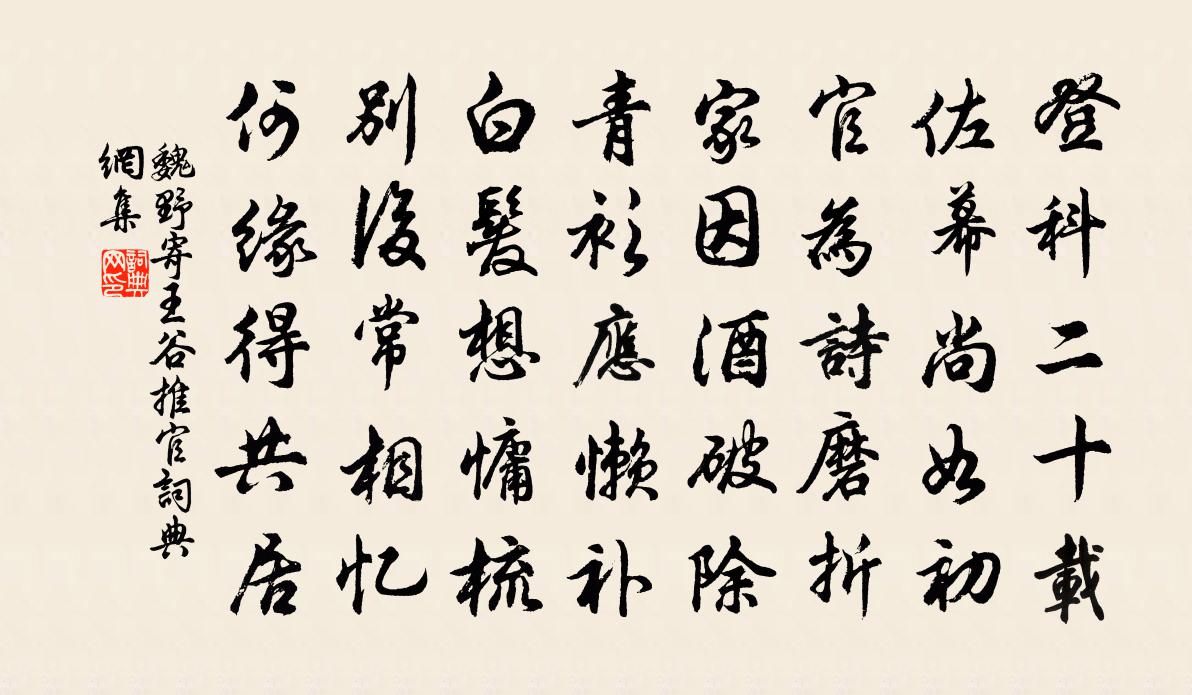 登科二十載
佐幕尚如初
官為詩磨折
家因酒破除
青衫應懶补
白髮想慵梳
別後常相忆
何緣得共居
魏野寄王谷推官詞典
網集
詞典
网印